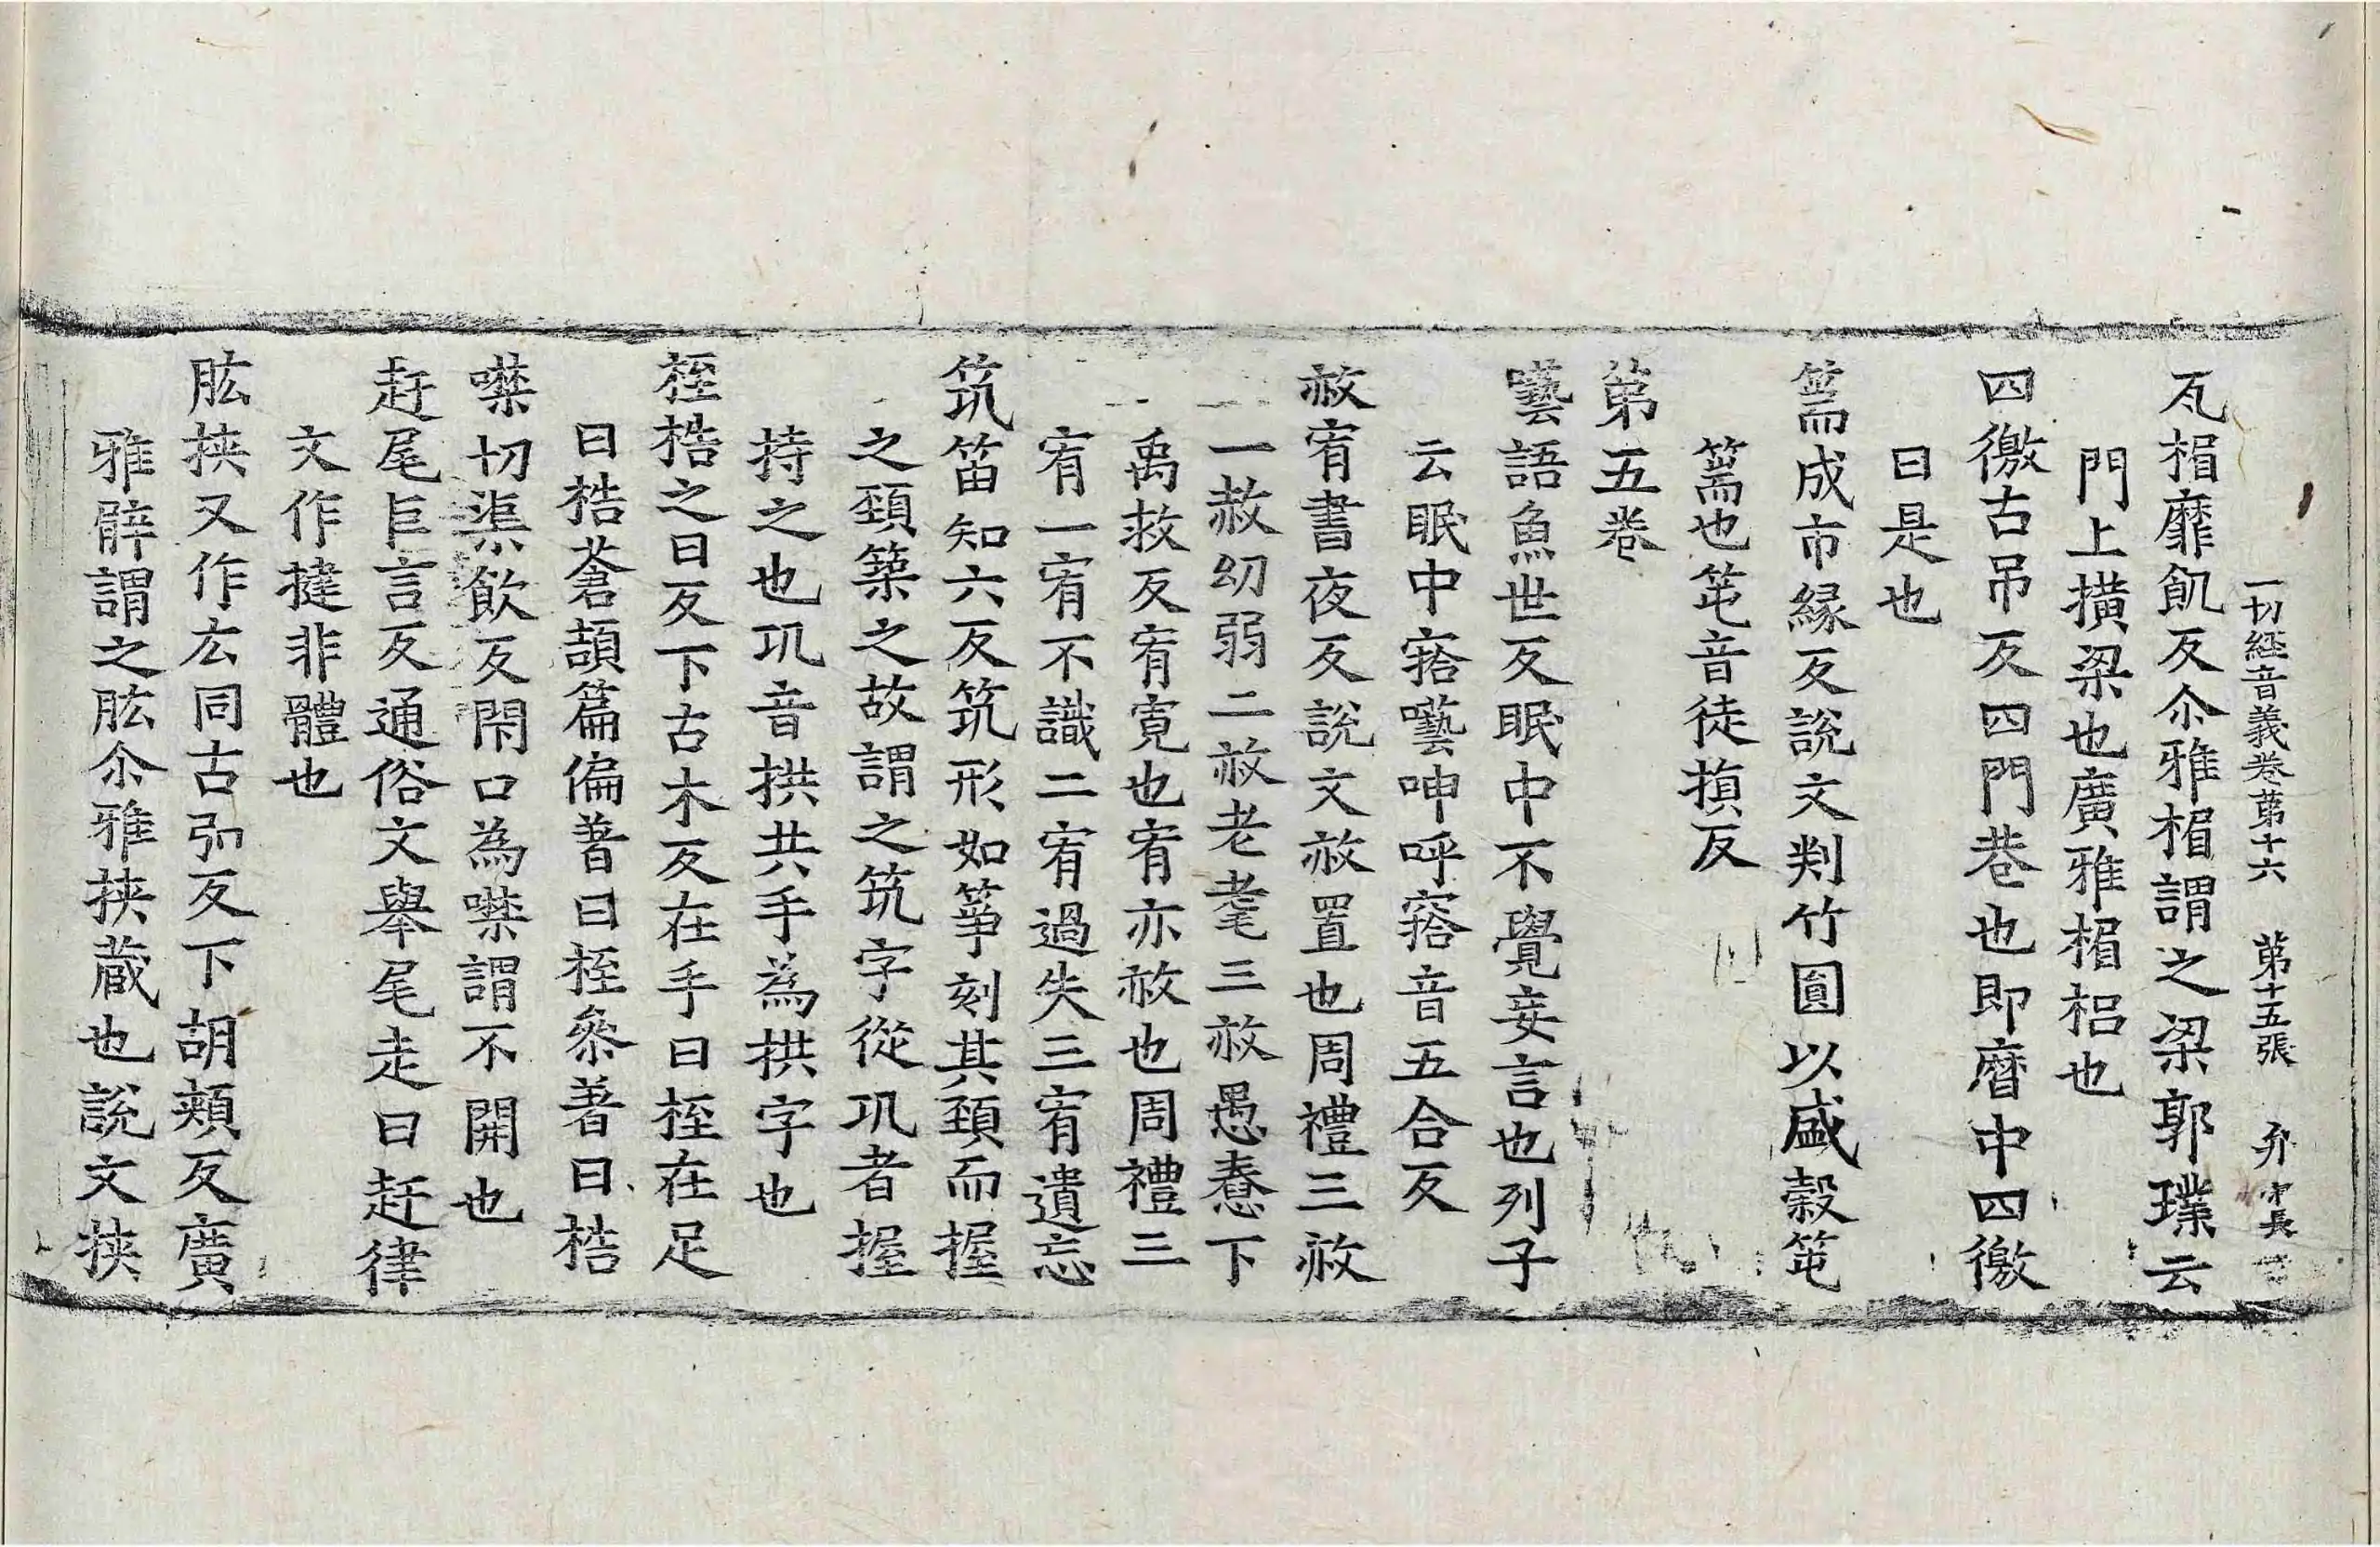 一切經音義卷苐十六 苐十五張 弁
瓦楣靡飢反尒雅楣謂之梁郭璞云
門上撗梁也廣雅楣梠也
四徼古吊反四門巷也即曆中四徼
曰是也
篅成市緣反說文判竹圓以盛糓笔
篅也笔音徒損反
苐五卷
囈語魚世反眠中不覺妄言也列子
云眠中㝓囈呻呼㝓音五合反
赦宥書夜反說文赦置也周禮三赦
一赦幼弱二赦老耄三赦愚惷下
禹救反宥寬也宥亦赦也周禮三
宥一宥不識二宥過失三宥遺忘
筑笛知六反筑形如箏刻其頚而握
之頚築之故謂之筑字從巩者握
持之也巩音拱共手為拱字也
桎梏之日反下古木反在手曰桎在足
曰梏蒼頡篇偏著曰桎叅著曰梏
噤切渠飲反閇口為噤謂不開也
赶尾巨言反通俗文舉尾走曰赶律
文作揵非體也
肱挾又作厷同古弘反下胡頰反廣
雅髀謂之肱尒雅挾蔵也說文挾